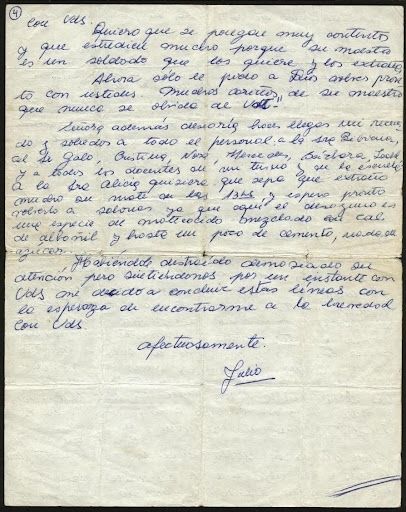 4
con Uds.
Quiero que se pongan muy contentos
y que estudien mucho porque su maestro
es un soldado que los quiere y los extraña.
Ahora sólo le pido a Dios volver pron
to con ustedes. Muchos cariños de su maestro
que nunca se olvida de Uds."
Señora además desearía hacer llegar mi recuer
do y saludos a todo el personal a la Sra
al Sr Galo, Cristina, Nora, Mercedes, Bárbara,
y a todos los docentes de mi turno y de la escuela
a la Sra Alicia quisiera que sepa que extraño
mucho su mate de las y espero pronto
volverlo a saborear ya que aquí el desayuno es
una especie de mate cocido mezclado con cal
de albañil y hasta un poco de cemento, nada de
azúcar.
Habiendo distraído demasiado su
atención pero sintiéndonos por un instante con
Uds me decido a concluir estas líneas con
la esperanza de encontrarme a la brevedad
con Uds
afectuosamente.
Julio